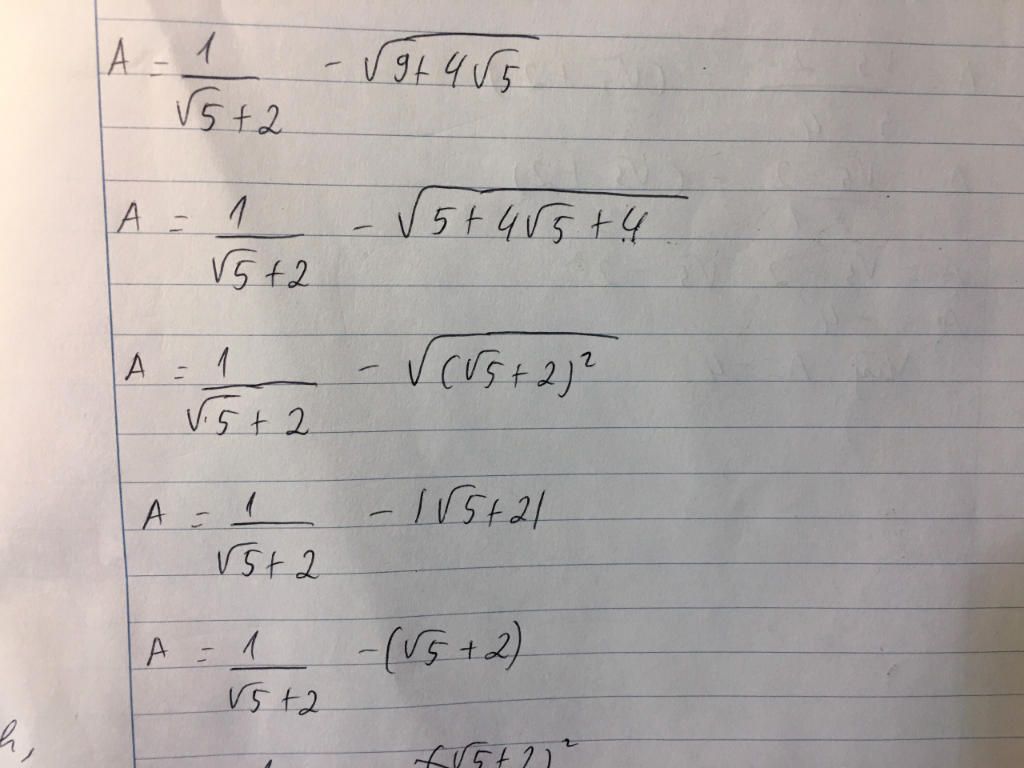 A = 1/(√5+2) - √(9+4√5)
A = 1/(√5+2) - √(5+4√5+4)
A = 1/(√5+2) - √((√5+2)²)
A = 1/(√5+2) - |√5+2|
A = 1/(√5+2) - (√5+2)
(√5+2)²